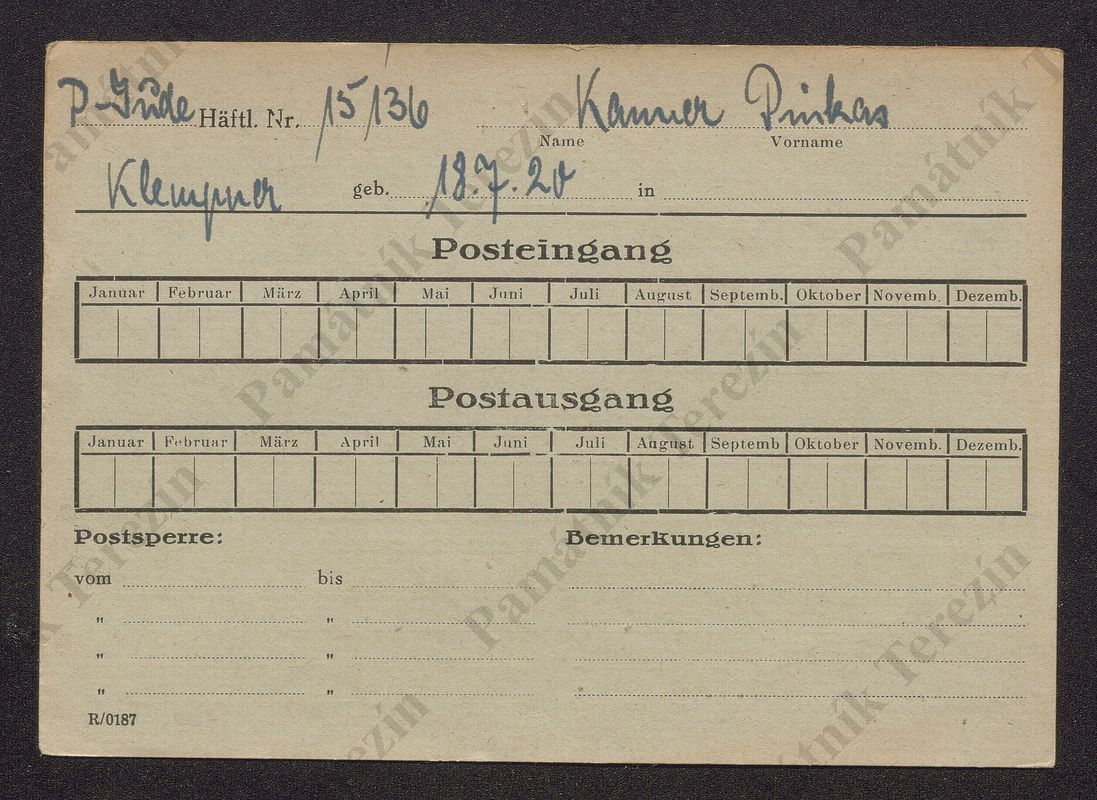 P-Jude Häftl. Nr. 15/136 Kanner Pinkas
Name Vorname
Klempner geb. 18.7.20 in
Posteingang
Januar Februar März April Mai Juni Juli August Septemb. Oktober Novemb. Dezemb.
Postausgang
Januar Februar März April Mai Juni Juli August Septemb Oktober Novemb. Dezemb.
Postsperre: Bemerkungen:
vom bis
" "
" "
" "
R/0187
Památník Terezín
Památník Terezín
Památník Terezín
Památník Terezín